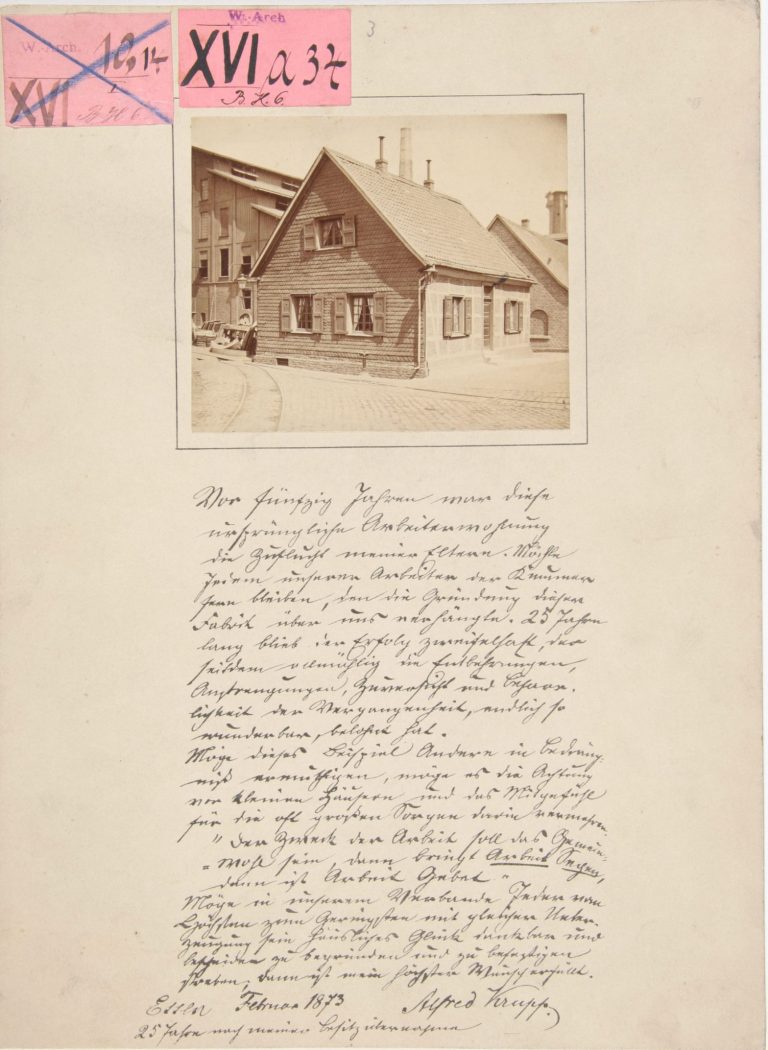 W.-Arch.
10,14
I
XVI
B. H. 6
W.-Arch
XVI a 34
B. H. 6.
3
Vor fünfzig Jahren war diese
ursprüngliche Arbeiterwohnung
die Zuflucht meiner Eltern. Möchte
Jedem unserer Arbeiter der Kummer
fern bleiben, den die Gründung dieser
Fabrik über uns verhängte. 25 Jahre
lang blieb der Erfolg zweifelhaft, der
seitdem allmählig die Entbehrungen,
Anstrengungen, Zuversicht und Beharr-
lichkeit der Vergangenheit, endlich so
wunderbar, belohnt hat.
Möge dieses Beispiel Andere in Bedräng-
niß ermuthigen, möge es die Achtung
vor kleinen Häusern und das Mitgefühl
für die oft großen Sorgen darin vermehren.
"Der Zweck der Arbeit soll das Gemein-
wohl sein, dann bringt Arbeit Segen,
dann ist Arbeit Gebet."
Möge in unserem Verbande Jeder vom
Höchsten zum Geringsten mit gleicher Ueber-
zeugung sein häusliches Glück dankbar und
bescheiden zu begründen und zu befestigen
streben; dann ist mein höchster Wunsch erfüllt.
Essen Februar 1873 Alfred Krupp.
25 Jahre nach meiner Besitzübernahme